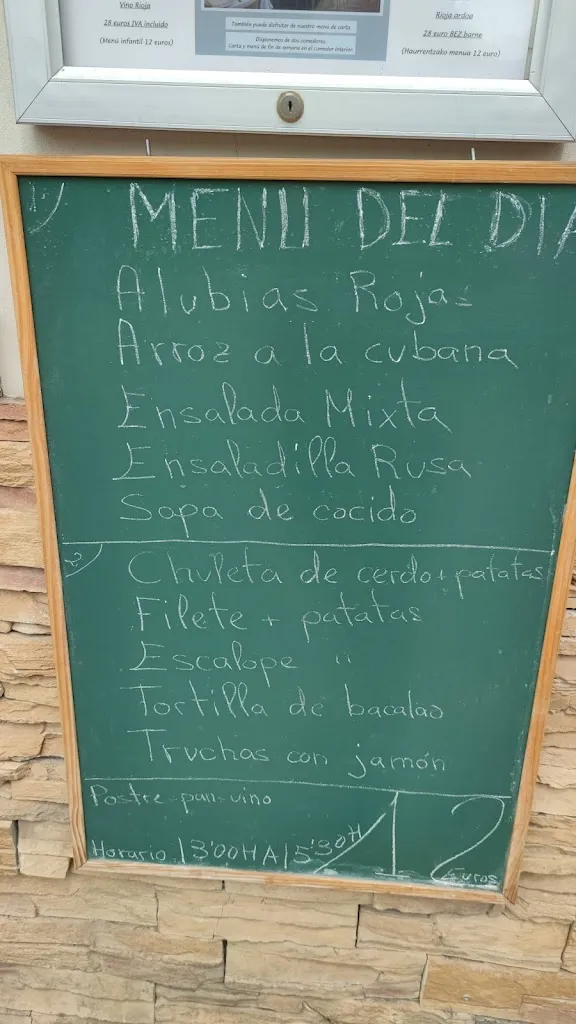 Vino Rioja
28 euros IVA incluido
(Menú infantil 12 euros)
También puede disfrutar de nuestro menú de carta.
Disponemos de dos comedores.
Carta y menú de fin de semana en el comedor interior.
Rioja ardoa
28 euro BEZ barne
(Haurrentzako menua 12 euro)
1º
MENU DEL DIA
Alubias Rojas
Arroz a la cubana
Ensalada Mixta
Ensaladilla Rusa
Sopa de cocido
2º
Chuleta de cerdo + patatas
Filete + patatas
Escalope "
Tortilla de bacalao
Truchas con jamón
Postre-pan-vino
Horario 13'00H A 15'30H
12
Euros